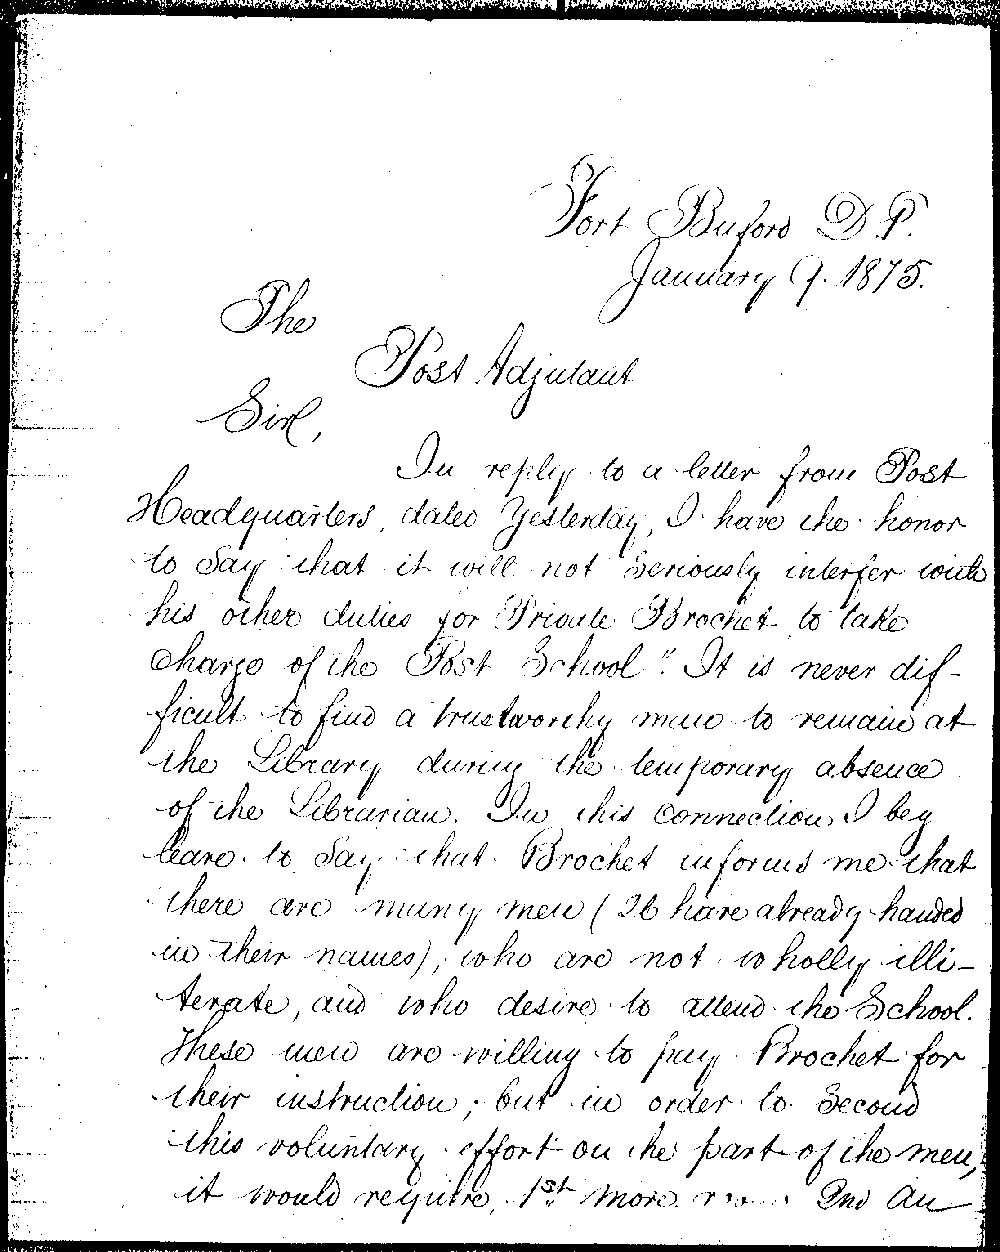 Fort Buford D.T.
January 9. 1875.
The
Post Adjutant
Sir,
In reply to a letter from Post
Headquarters, dated Yesterday, I have the honor
to say that it will not seriously interfer with
his other duties for Private Brochet to take
charge of the Post School". It is never dif-
ficult to find a trustworthy man to remain at
the Library during the temporary absence
of the Librarian. In this connection I beg
leave to say that Brochet informs me that
there are many men (26 have already handed
in their names), who are not wholly illi-
terate, and who desire to attend the School.
These men are willing to pay Brochet for
their instruction; but in order to second
this voluntary effort on the part of the men,
it would require, 1st more 2nd An